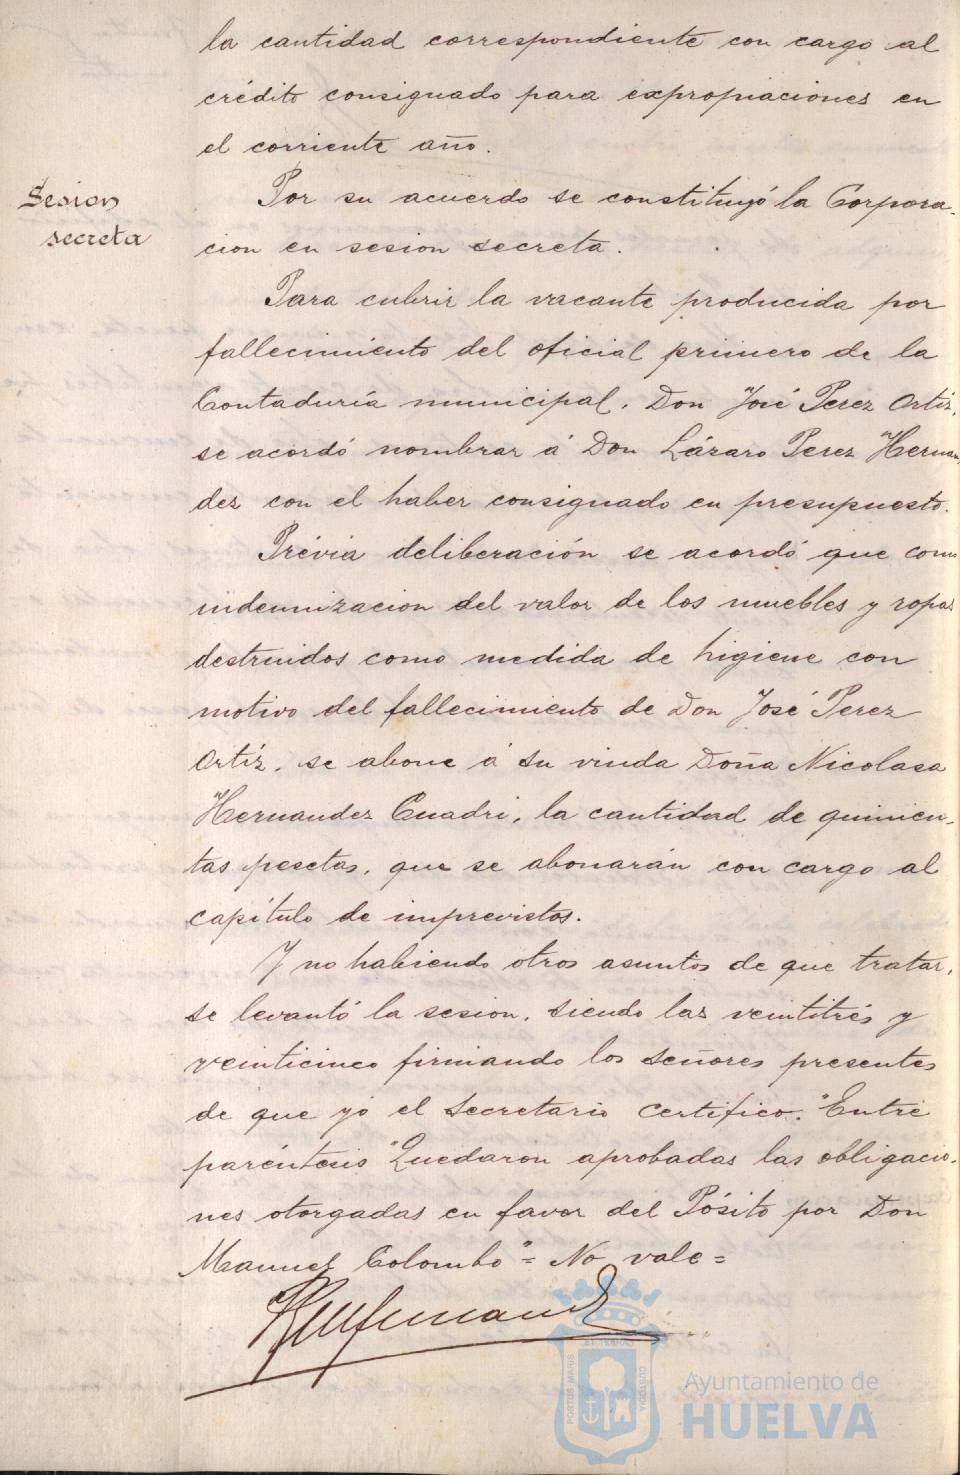 la cantidad correspondiente con cargo al
crédito consignado para expropiaciones en
el corriente año.
Sesion
secreta
Por su acuerdo se constituyó la Corpora-
cion en sesion secreta.
Para cubrir la vacante producida por
fallecimiento del oficial primero de la
Contaduría municipal, Don José Perez Ortíz,
se acordó nombrar á Don Lázaro Perez Hernan-
dez con el haber consignado en presupuesto.
Prévia deliberación se acordó que como
indemnizacion del valor de los muebles y ropas
destruidos como medida de higiene con
motivo del fallecimiento de Don José Perez
Ortíz, se abone á su viuda Doña Nicolasa
Hernandez Cuadri, la cantidad de quinien-
tas pesetas, que se abonarán con cargo al
capítulo de imprevistos.
Y no habiendo otros asuntos de que tratar,
se levantó la sesion, siendo las veintitrés y
veinticinco firmando los señores presentes
de que yó el Secretario certifico. "Entre
paréntesis "Quedaron aprobadas las obligacio-
nes otorgadas en favor del Pósito por Don
Manuel Colombo" = No vale =
PORTUS MARIS
CUSTODIA
Ayuntamiento de
HUELVA